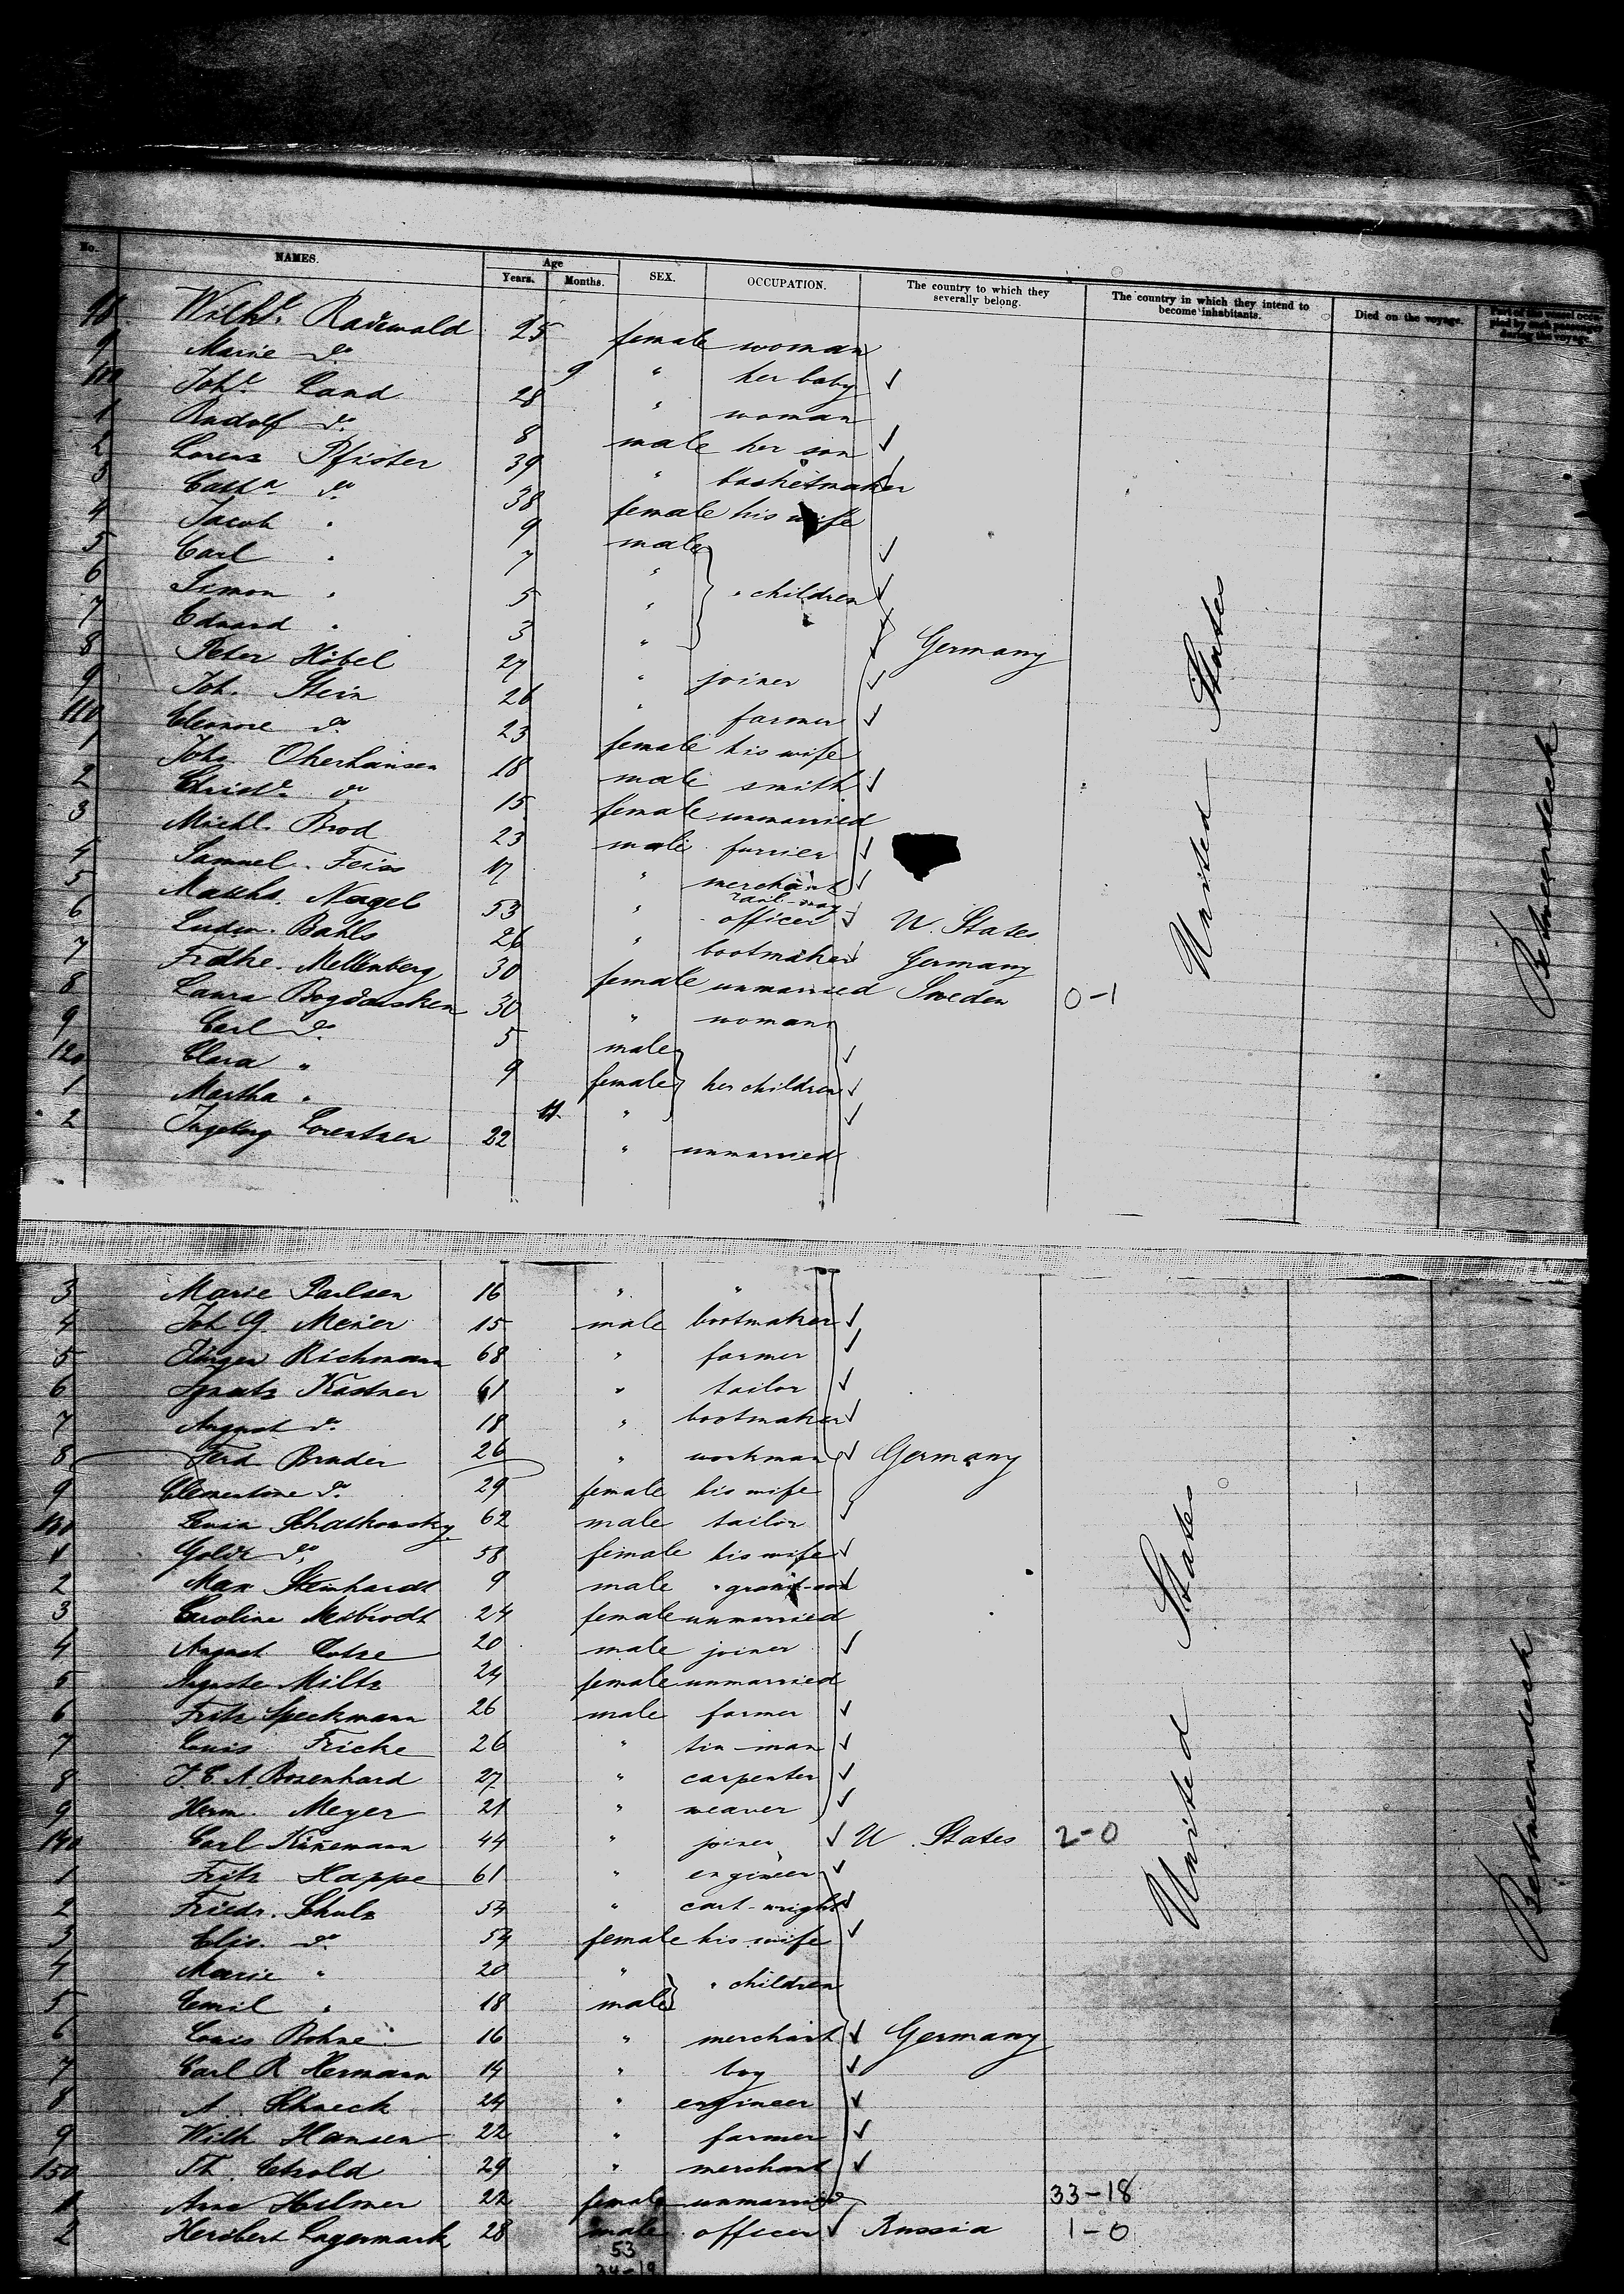 No. NAMES. Age Years. Months. SEX. OCCUPATION. The country to which they severally belong. The country in which they intend to become inhabitants. Died on the voyage. Part of the vessel occupied by each passenger during the voyage.
98 Wilhe. Radewald 25 female woman
9 Marie do 9 " her baby
100 Johe Land 28 " woman
1 Rudolf do 8 male her son
2 Lorenz Pfister 39 " basketmaker
3 Catha. do 38 female his wife
4 Jacob " 9 male
5 Carl " 7 "
6 Simon " 5 " " children
7 Eduard " 3 "
8 Peter Höbel 27 " joiner Germany
9 Joh. Stein 26 " farmer
110 Eleonore do 23 female his wife
1 Johs Oberhänsen 18 male smith
2 Christe. do 15 female unmarried
3 Michl. Brod 23 male furrier
4 Samuel Feiss 17 " merchant
5 Maths. Nagel 53 " rail-way officer U. States
6 Ludw. Bahls 26 " bootmaker Germany
7 Fredke. Mellenberg 30 female unmarried Sweden 0-1
8 Laura 30 " woman
9 Carl do 5 male
120 Clara " 9 female her children
1 Martha " 11 "
2 Ingeborg Lorentzen 22 " unmarried
United States
Betweendeck
3 Marie Paulsen 16 " "
4 Joh G. Meier 15 male bootmaker
5 Jürgen Richmann 68 " farmer
6 Ignatz Kastner 61 " tailor
7 August do 18 " bootmaker
8 Ferd Bruder 26 " workman Germany
9 Clementine do 29 female his wife
130 Levin Schatkowsky 62 male tailor
1 Golde do 58 female his wife
2 Max Steinhardt 9 male " grand-son
3 Caroline 24 female unmarried
4 August 20 male joiner
5 Auguste Miltz 24 female unmarried
6 Fritz Speckmann 26 male farmer
7 Louis Fricke 26 " tin-man
8 J. C. A. Bosenhard 27 " carpenter
9 Herm. Meyer 21 " weaver
140 Carl Künemann 44 " joiner U. States 2-0
1 Fritz Happe 61 " engineer
2 Friedr. Schulz 54 " cart-wright
3 Elis. do 54 female his wife
4 Marie " 20 " " children
5 Emil " 18 male
6 Louis Bohne 16 " merchant Germany
7 Carl R Hermann 14 " boy
8 A. Schneck 24 " engineer
9 Wilh Hansen 22 " farmer
150 Th. Etzold 29 " merchant
1 Ana Helmer 22 female unmarried 33-18
2 Heribert Lagermark 28 male officer Russia 1-0
United States
Betweendeck
53
34-19